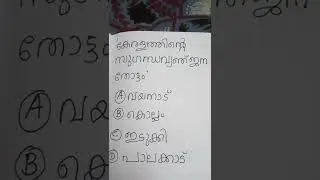 'കേരളത്തിന്റെ
സുഗന്ധവ്യഞ്ജന
തോട്ടം'
Ⓐ വയനാട്
Ⓑ കൊല്ലം
Ⓒ ഇടുക്കി
Ⓓ പാലക്കാട്
Ⓑ കൊല്ലം